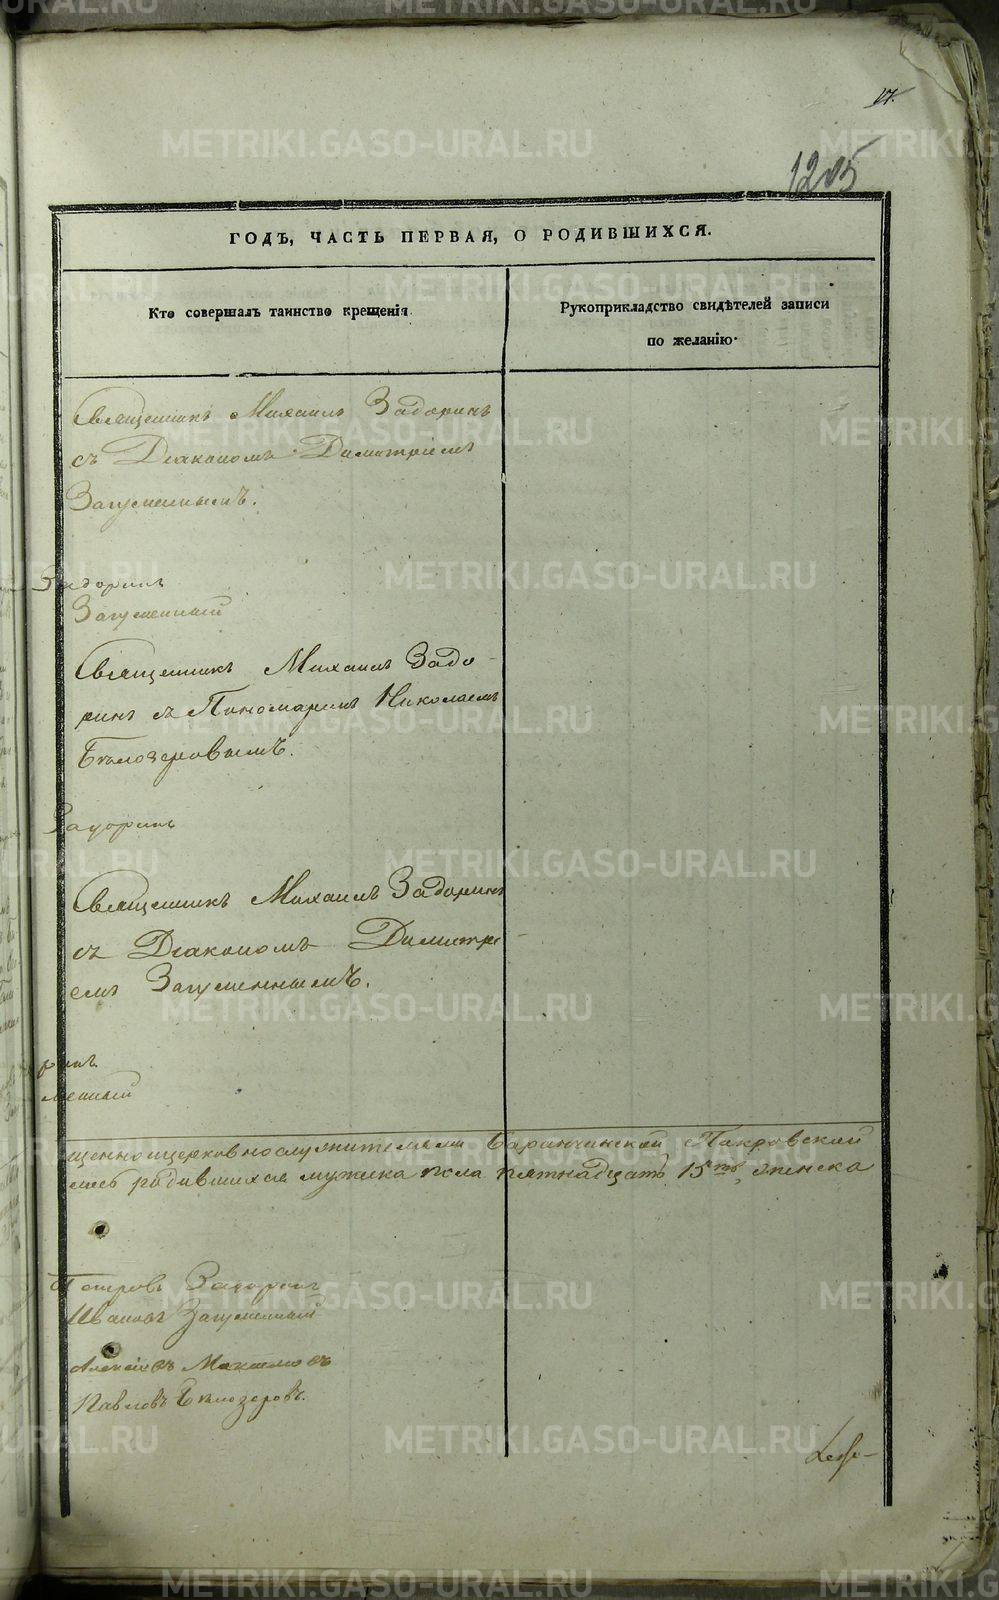 17.
1205
ГОДЪ, ЧАСТЬ ПЕРВАЯ, О РОДИВШИХСЯ.
Кто совершалъ таинство крещенія.
Рукоприкладство свидѣтелей записи
по желанію.
Священникъ Михаилъ Задоринъ
съ Діакономъ Димитріемъ
Загуменнымъ.
Задоринъ
Загуменный
Священникъ Михаилъ Задо-
ринъ съ Пономаремъ Николаемъ
Бѣлозеровымъ.
Задоринъ
Священникъ Михаилъ Задоринъ
съ Діакономъ Димитрі
емъ Загуменнымъ.
ринъ.
менный
щенноцерковнослужителями Баранчинской Покровской
родившихся мужеска пола пятнадцать 15ть, женска
Петровъ Задоринъ
Ивановъ Загуменный
Алексѣевъ
Павловъ Бѣлозеровъ.
METRIKI.GASO-URAL.RU